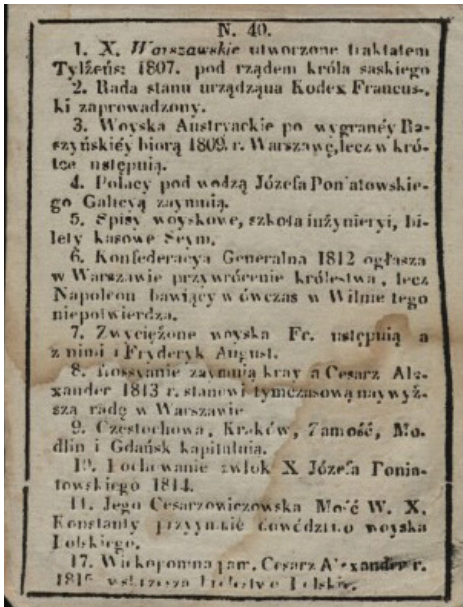 N. 40.
1. X. Warszawskie utworzone traktatem
Tylżeńs: 1807. pod rządem króla saskiego
2. Rada stanu urządzona Kodex Francus-
ki zaprowadzony.
3. Woyska Austryackie po wygranéy Ra-
szyńskiéy biorą 1809. r. Warszawę, lecz w kró-
tce ustępuią.
4. Polacy pod wodzą Józefa Poniatowskie-
go Galicyą zaymuią.
5. Spisy woyskowe, szkoła inżynieryi, bi-
lety kasowe Seym.
6. Konfederacya Generalna 1812 ogłasza
w Warszawie przywrócenie królestwa, lecz
Napoleon bawiący w ówczas w Wilnie tego
niepotwierdza.
7. Zwyciężone woyska Fr. ustępuią a
z nimi i Fryderyk August.
8. Rossyanie zaymuią kray a Cesarz Ale-
xander 1813 r. stanowi tymczasową naywyż-
szą radę w Warszawie
9. Częstochowa, Kraków, Zamość, Mo-
dlin i Gdańsk kapituluią.
10. Pochowanie zwłok X Józefa Ponia-
towskiego 1814.
11. Jego Cesarzowiczowska Mość W. X.
Konstanty przyymuie dowództwo woyska
Polskiego.
Cesarz Alexander r.
wskrzesza Królestwo Polskie.